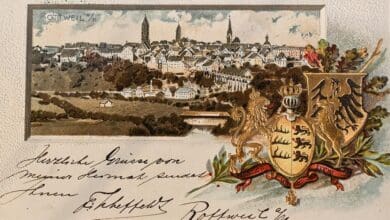 ROTTWEIL a/N
Herzliche Grüsse von
meiner Heimat sendet
Ihnen
Rottweil a/